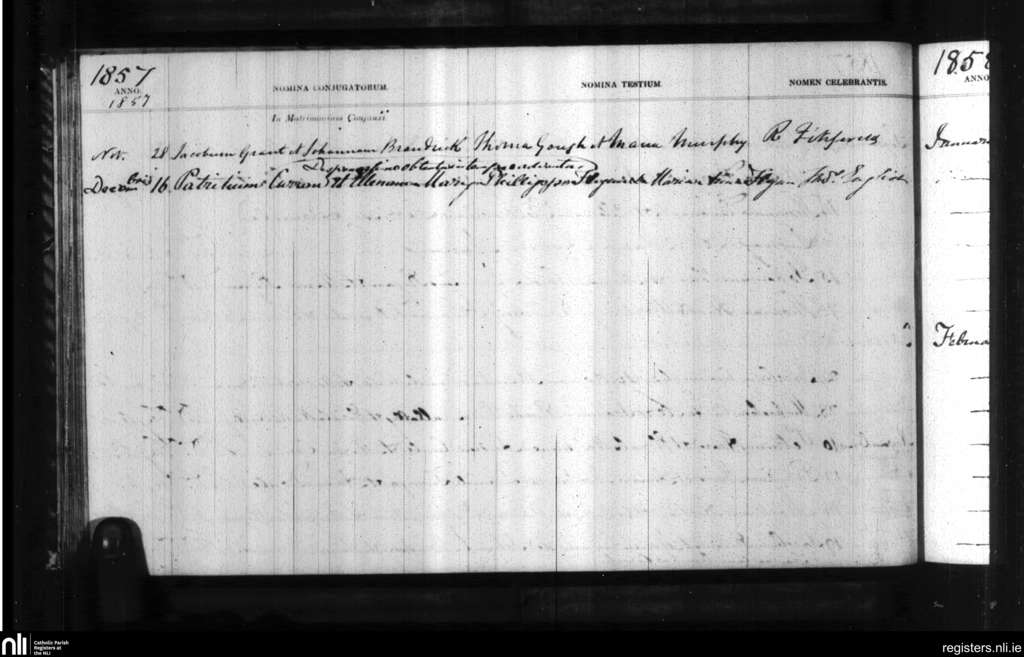 1857
ANNO.
1857
NOMINA CONJUGATORUM.
NOMINA TESTIUM
NOMEN CELEBRANTIS.
In Matrimonium Conjunxi
Nov. 28 Jacobum Grant et Johannam Brandrick Thoma Gough et Maria Murphy R Fitzgerald
Decem bris 16 Patritium Curran et Ellenam Philippo Maria Ryan Thos. English
1858
ANNO
Januar
Februa
nli
Catholic Parish
Registers at
the NLI
registers.nli.ie